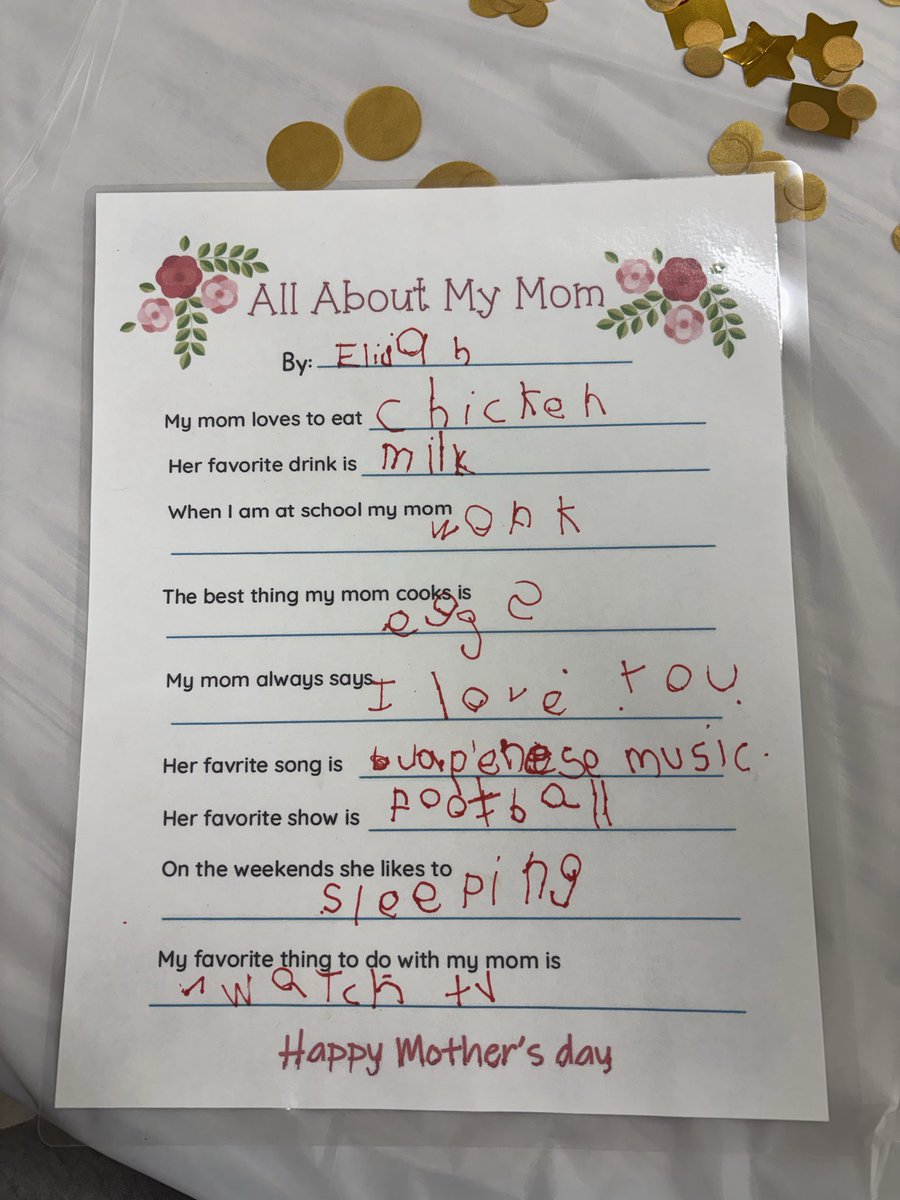 All About My Mom
By: Elijah
My mom loves to eat chicken
Her favorite drink is milk
When I am at school my mom
work
The best thing my mom cooks is
eggs
My mom always says
I love you.
Her favrite song is Japenese music.
Her favorite show is football
On the weekends she likes to
sleeping
My favorite thing to do with my mom is
watch tv
Happy Mother's day